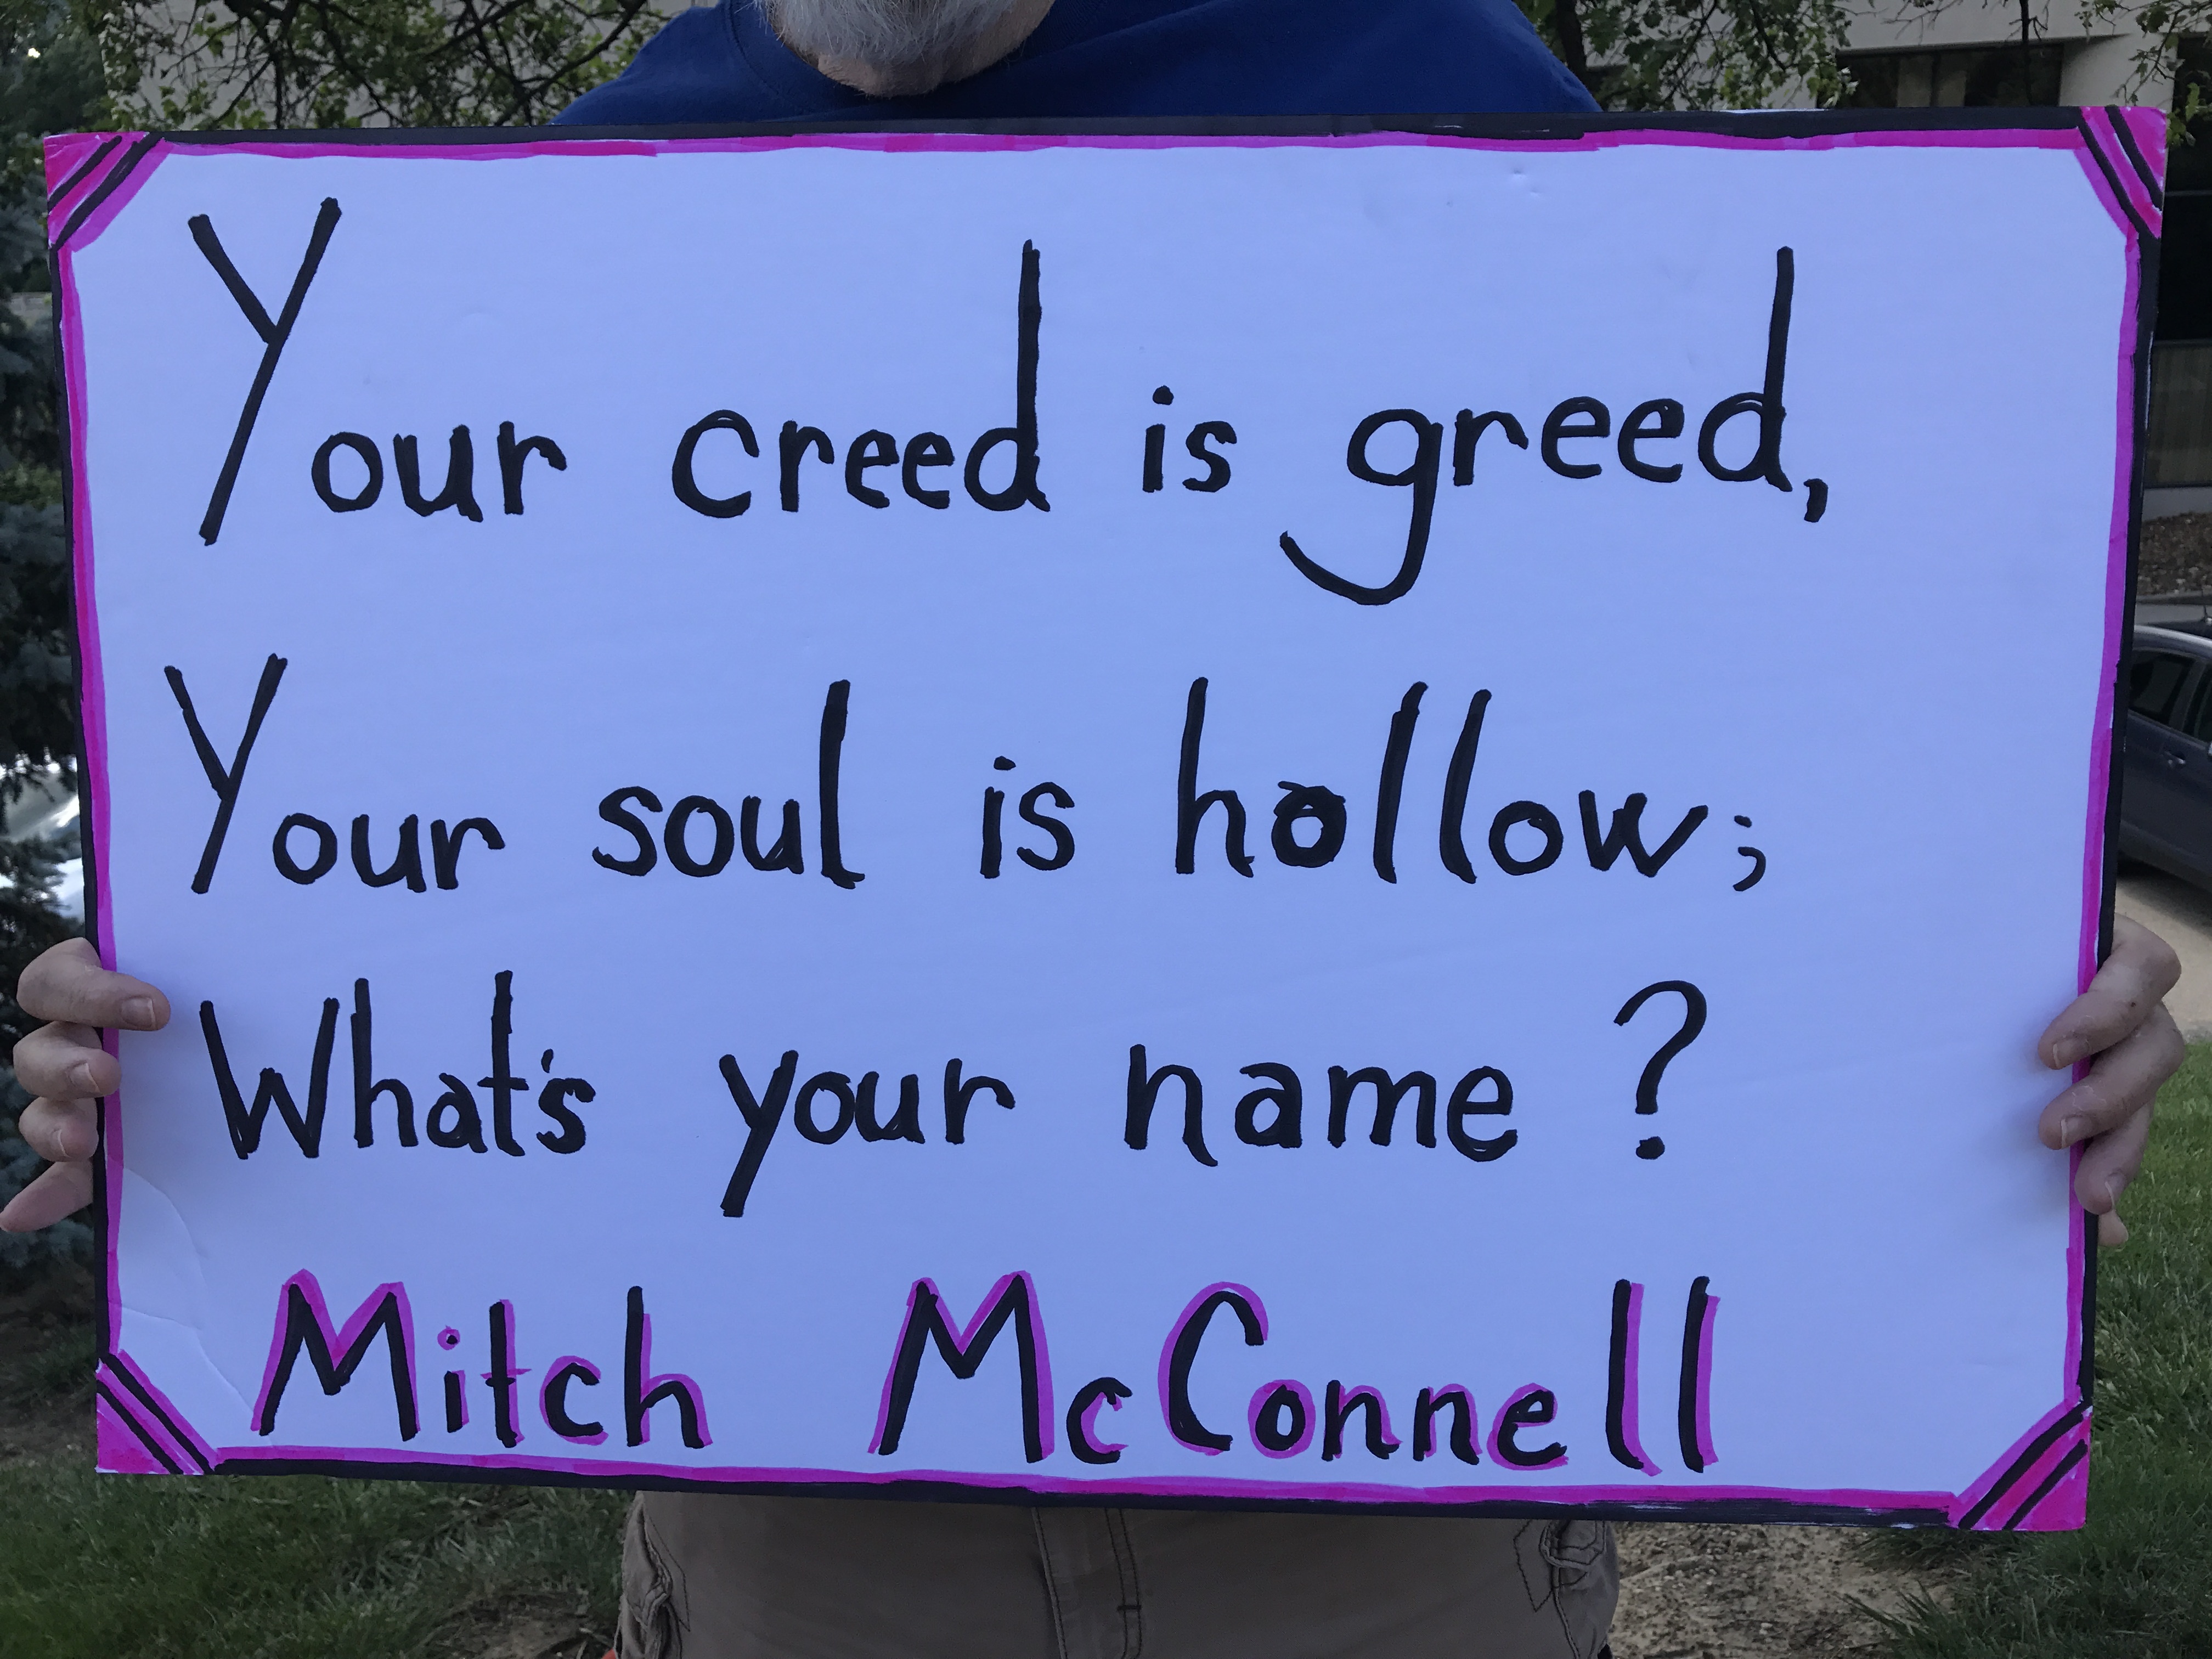 Your creed is greed,
Your soul is hollow;
What's your name?
Mitch McConnell